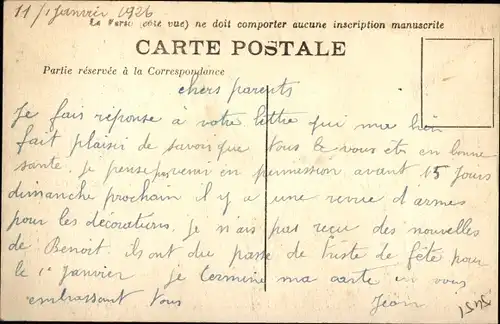 11/1 Janvier 1926
Le Verso (côté vue) ne doit comporter aucune inscription manuscrite
CARTE POSTALE
Partie réservée à la Correspondance
chers parents
Je fais réponse à votre lettre qui ma bien
fait plaisir de savoir que tous le vous êtê en bonne
santé. je pense pas venir en permission avant 15 jours
dimanche prochain il y a une revue d'armes
pour les décorations. je n'ais pas reçu des nouvelles
de Benoit. ils ont du passe de triste de fête pour
le 1e Janvier je termine ma carte en vous
embrassant tous Jean